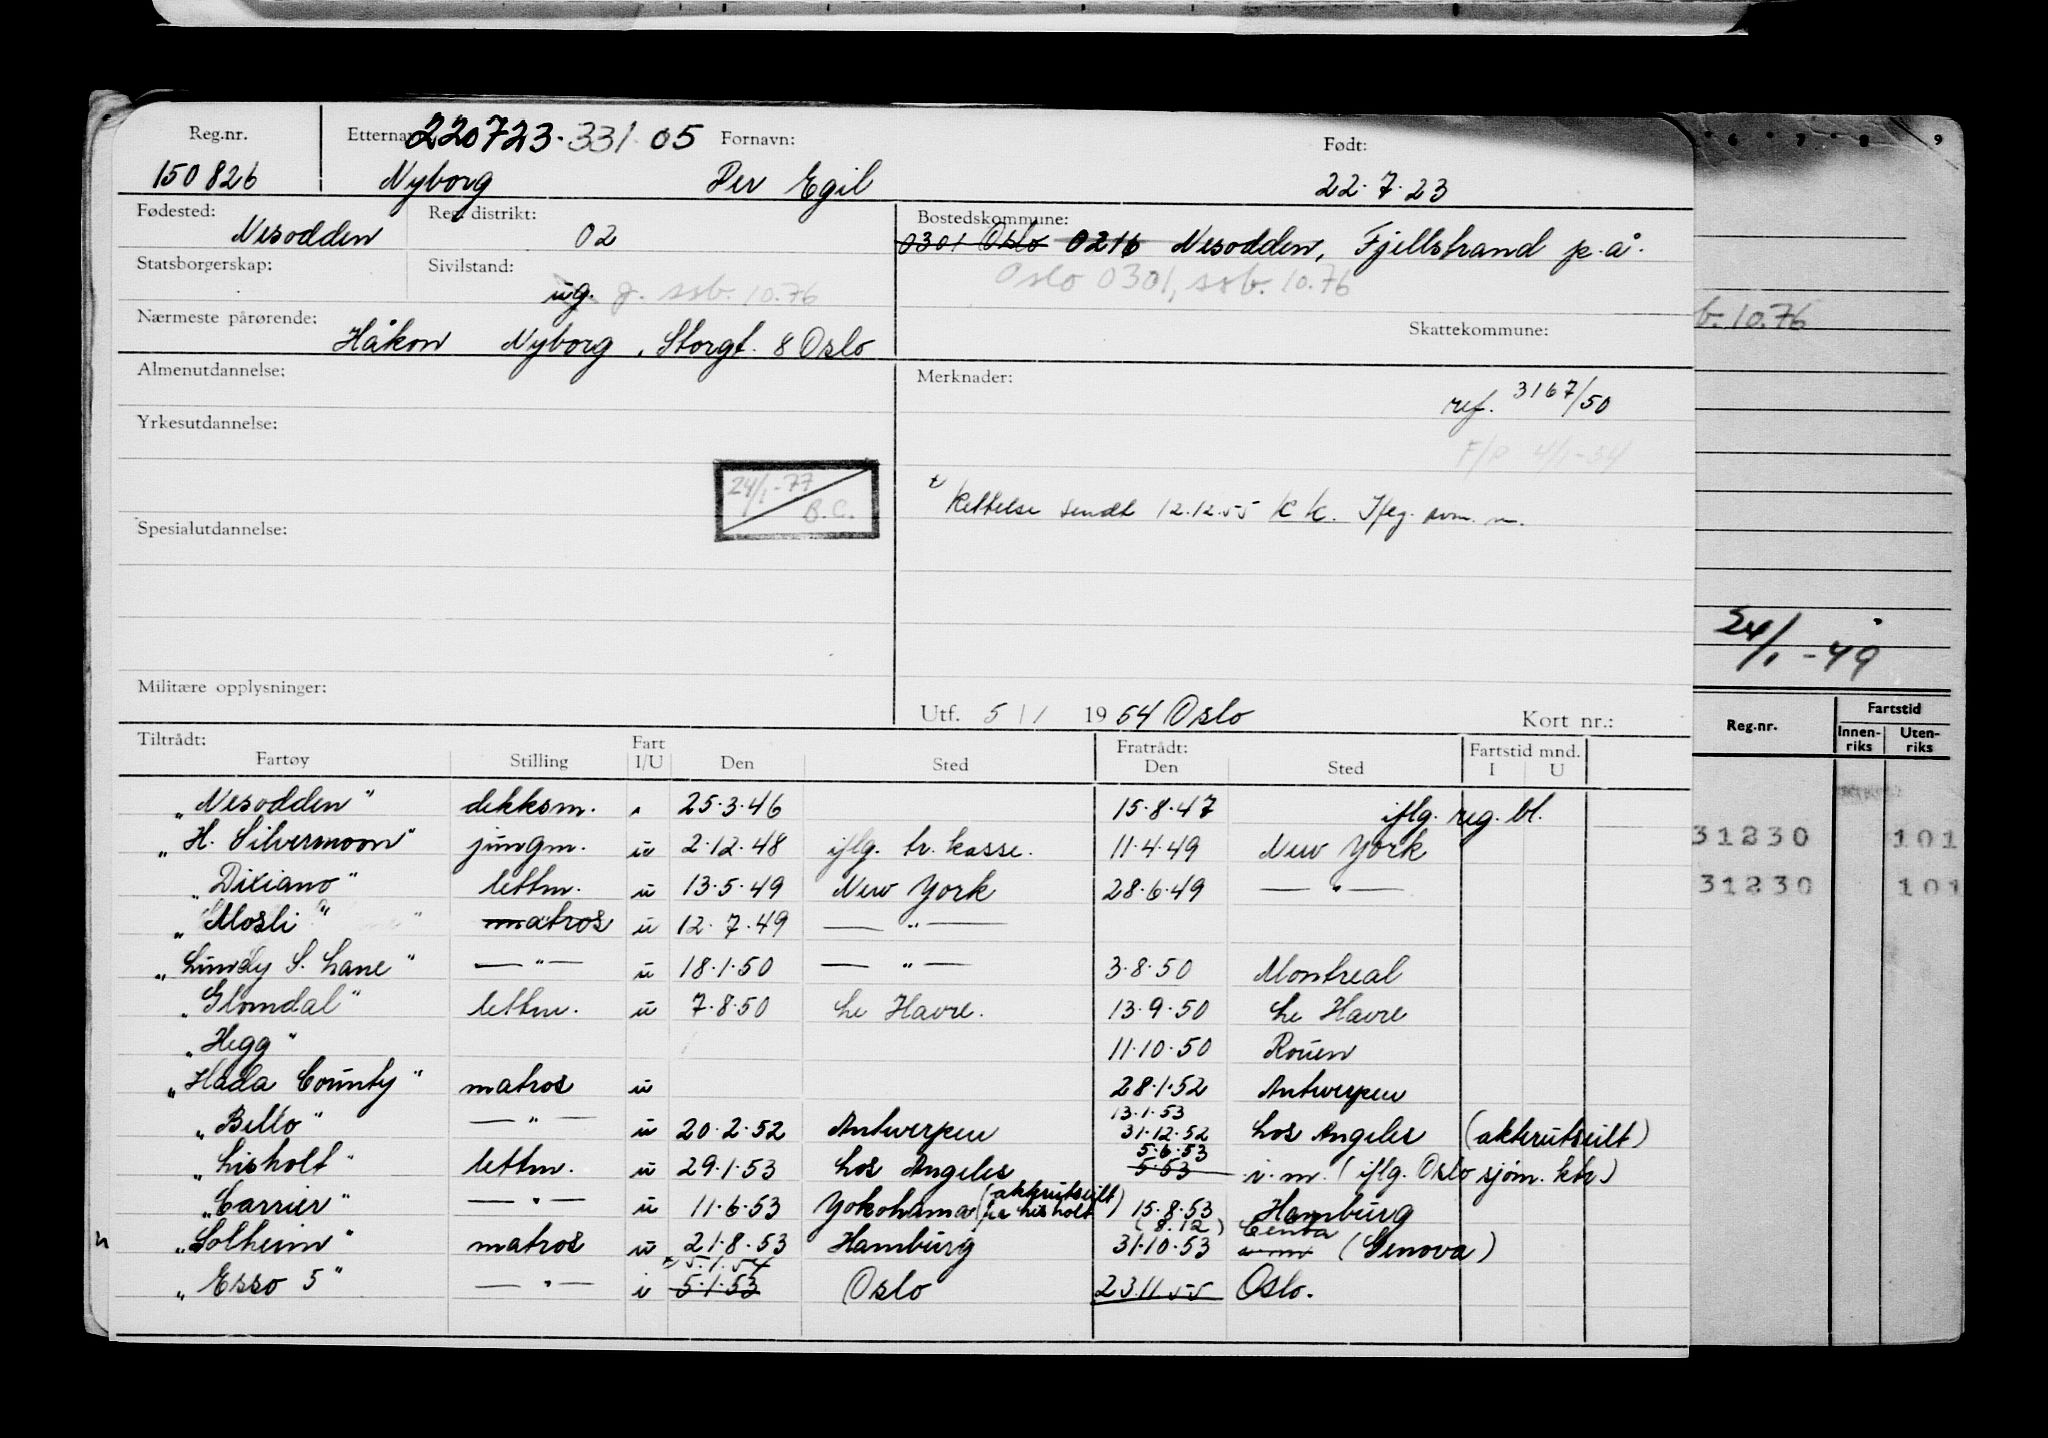 Reg.nr. Etternavn 220723-331 05 Fornavn: Født:
150826 Nyborg Per Egil 22.7.23
Fødested: Nesodden Reg. distrikt: 02 Bostedskommune: 0301 Oslo 0216 Nesodden, Fjellstrand p.å.
Statsborgerskap: Sivilstand: ug. g. ssb. 10.76 Oslo 0301, ssb. 10.76
Nærmeste pårørende: Håkon Nyborg, Storgt. 8 Oslo Skattekommune:
Almenutdannelse: Merknader:
ref. 3167/50
Yrkesutdannelse:
F/P 4/1-54
24/1-77 B.C.
Rettelse sendt 12.12.55 K K. Iflg. søm. m.
Spesialutdannelse:
Militære opplysninger:
Utf. 5/1 1954 Oslo Kort nr.:
Tiltrådt: Fratrådt: Fartstid mnd.
Fartøy Stilling Fart I/U Den Sted Den Sted I U
"Nesodden" dekksm. 25.3.46 15.8.47 iflg. reg. bl.
"H. Silvermoon" jungm. u 2.12.48 iflg. tr. kasse. 11.4.49 New York
"Dixiano" lettm. u 13.5.49 New York 28.6.49 — " —
"Mosli" matros u 12.7.49 — " —
"Lundy S. Lane" — " — u 18.1.50 — " — 3.8.50 Montreal
"Glomdal" lettm. u 7.8.50 Le Havre. 13.9.50 Le Havre
"Hegg" 11.10.50 Rouen
"Hada County" matros u 28.1.52 Antwerpen
"Bello" — " — u 20.2.52 Antwerpen 13.1.53 31.12.52 Los Angeles (akterutseilt)
"Lisholt" lettm. u 29.1.53 Los Angeles 5.6.53 5.53 i.m. (iflg. Oslo sjøm. ktr.)
"Carrier" — " — u 11.6.53 Yokohama (akterutseilt fra Lisholt) 15.8.53 Hamburg
"Solheim" matros u 21.8.53 Hamburg (8.12) 31.10.53 Ceuta (Genova)
"Esso 5" — " — i 5.1.54 5.1.53 Oslo 23.11.55 Oslo.
6 7 8 9
b. 10.76
24/1-49
Reg.nr. Fartstid
Innenriks Utenriks
31230 101
31230 101